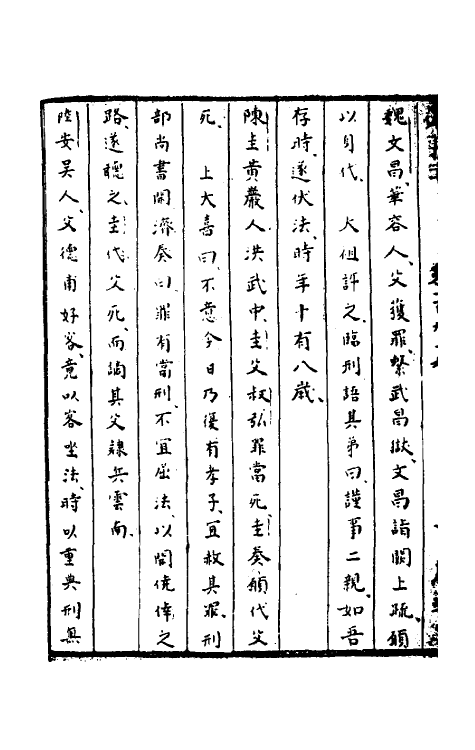 魏文昌、華容人、父獲罪、繫武昌獄、文昌詣闕上疏、願
以身代、太祖許之、臨刑語其弟曰、謹事二親、如吾
存時、遂伏法、時年十有八歲、
陳圭黄巖人洪武中、圭父叔弘罪當死、圭奏願代父
死、上大喜曰、不意今日乃復有孝子、宜赦其罪、刑
部尚書開濟奏曰、罪有當刑、不宜屈法、以開僥倖之
路、遂聽之、圭代父死、而謫其父隸兵雲南、
陸安吴人、父德甫好客、竟以客坐法、時以重典刑無